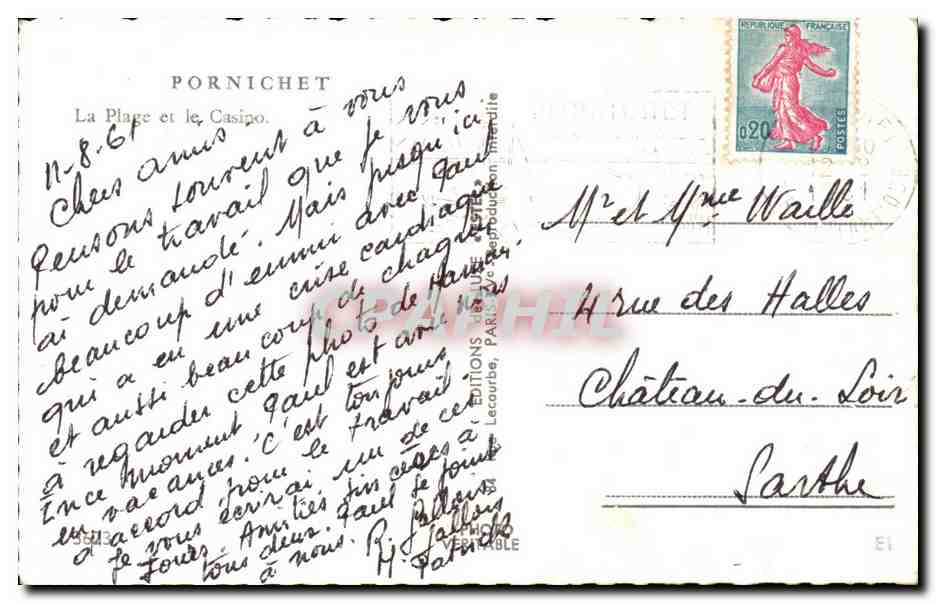 PORNICHET
La Plage et le Casino.
11-8-61
Chers amis
Pensons souvent à vous
pour le travail que je vous
ai demandé. Mais jusqu'ici
beaucoup d'ennui avec Paul
qui a eu une crise cardiaque
et aussi beaucoup de chagrin
à regarder cette photo de Maman.
En ce moment Paul est avec nous
en vacances. C'est toujours
d'accord pour le travail.
Je vous écrirai un de ces
jours. Amitiés sincères à
tous deux. Paul se joint
à nous.
3623
EDITIONS de LUXE «ESTEL»
Lecourbe, PARIS-XVe Reproduction interdite
PHOTO
VERITABLE
CPAPHIL
REPUBLIQUE FRANÇAISE
0,20
POSTES
PORNICHET
Mr et Mme Waille
4 rue des Halles
Château-du-Loir
Sarthe
E1